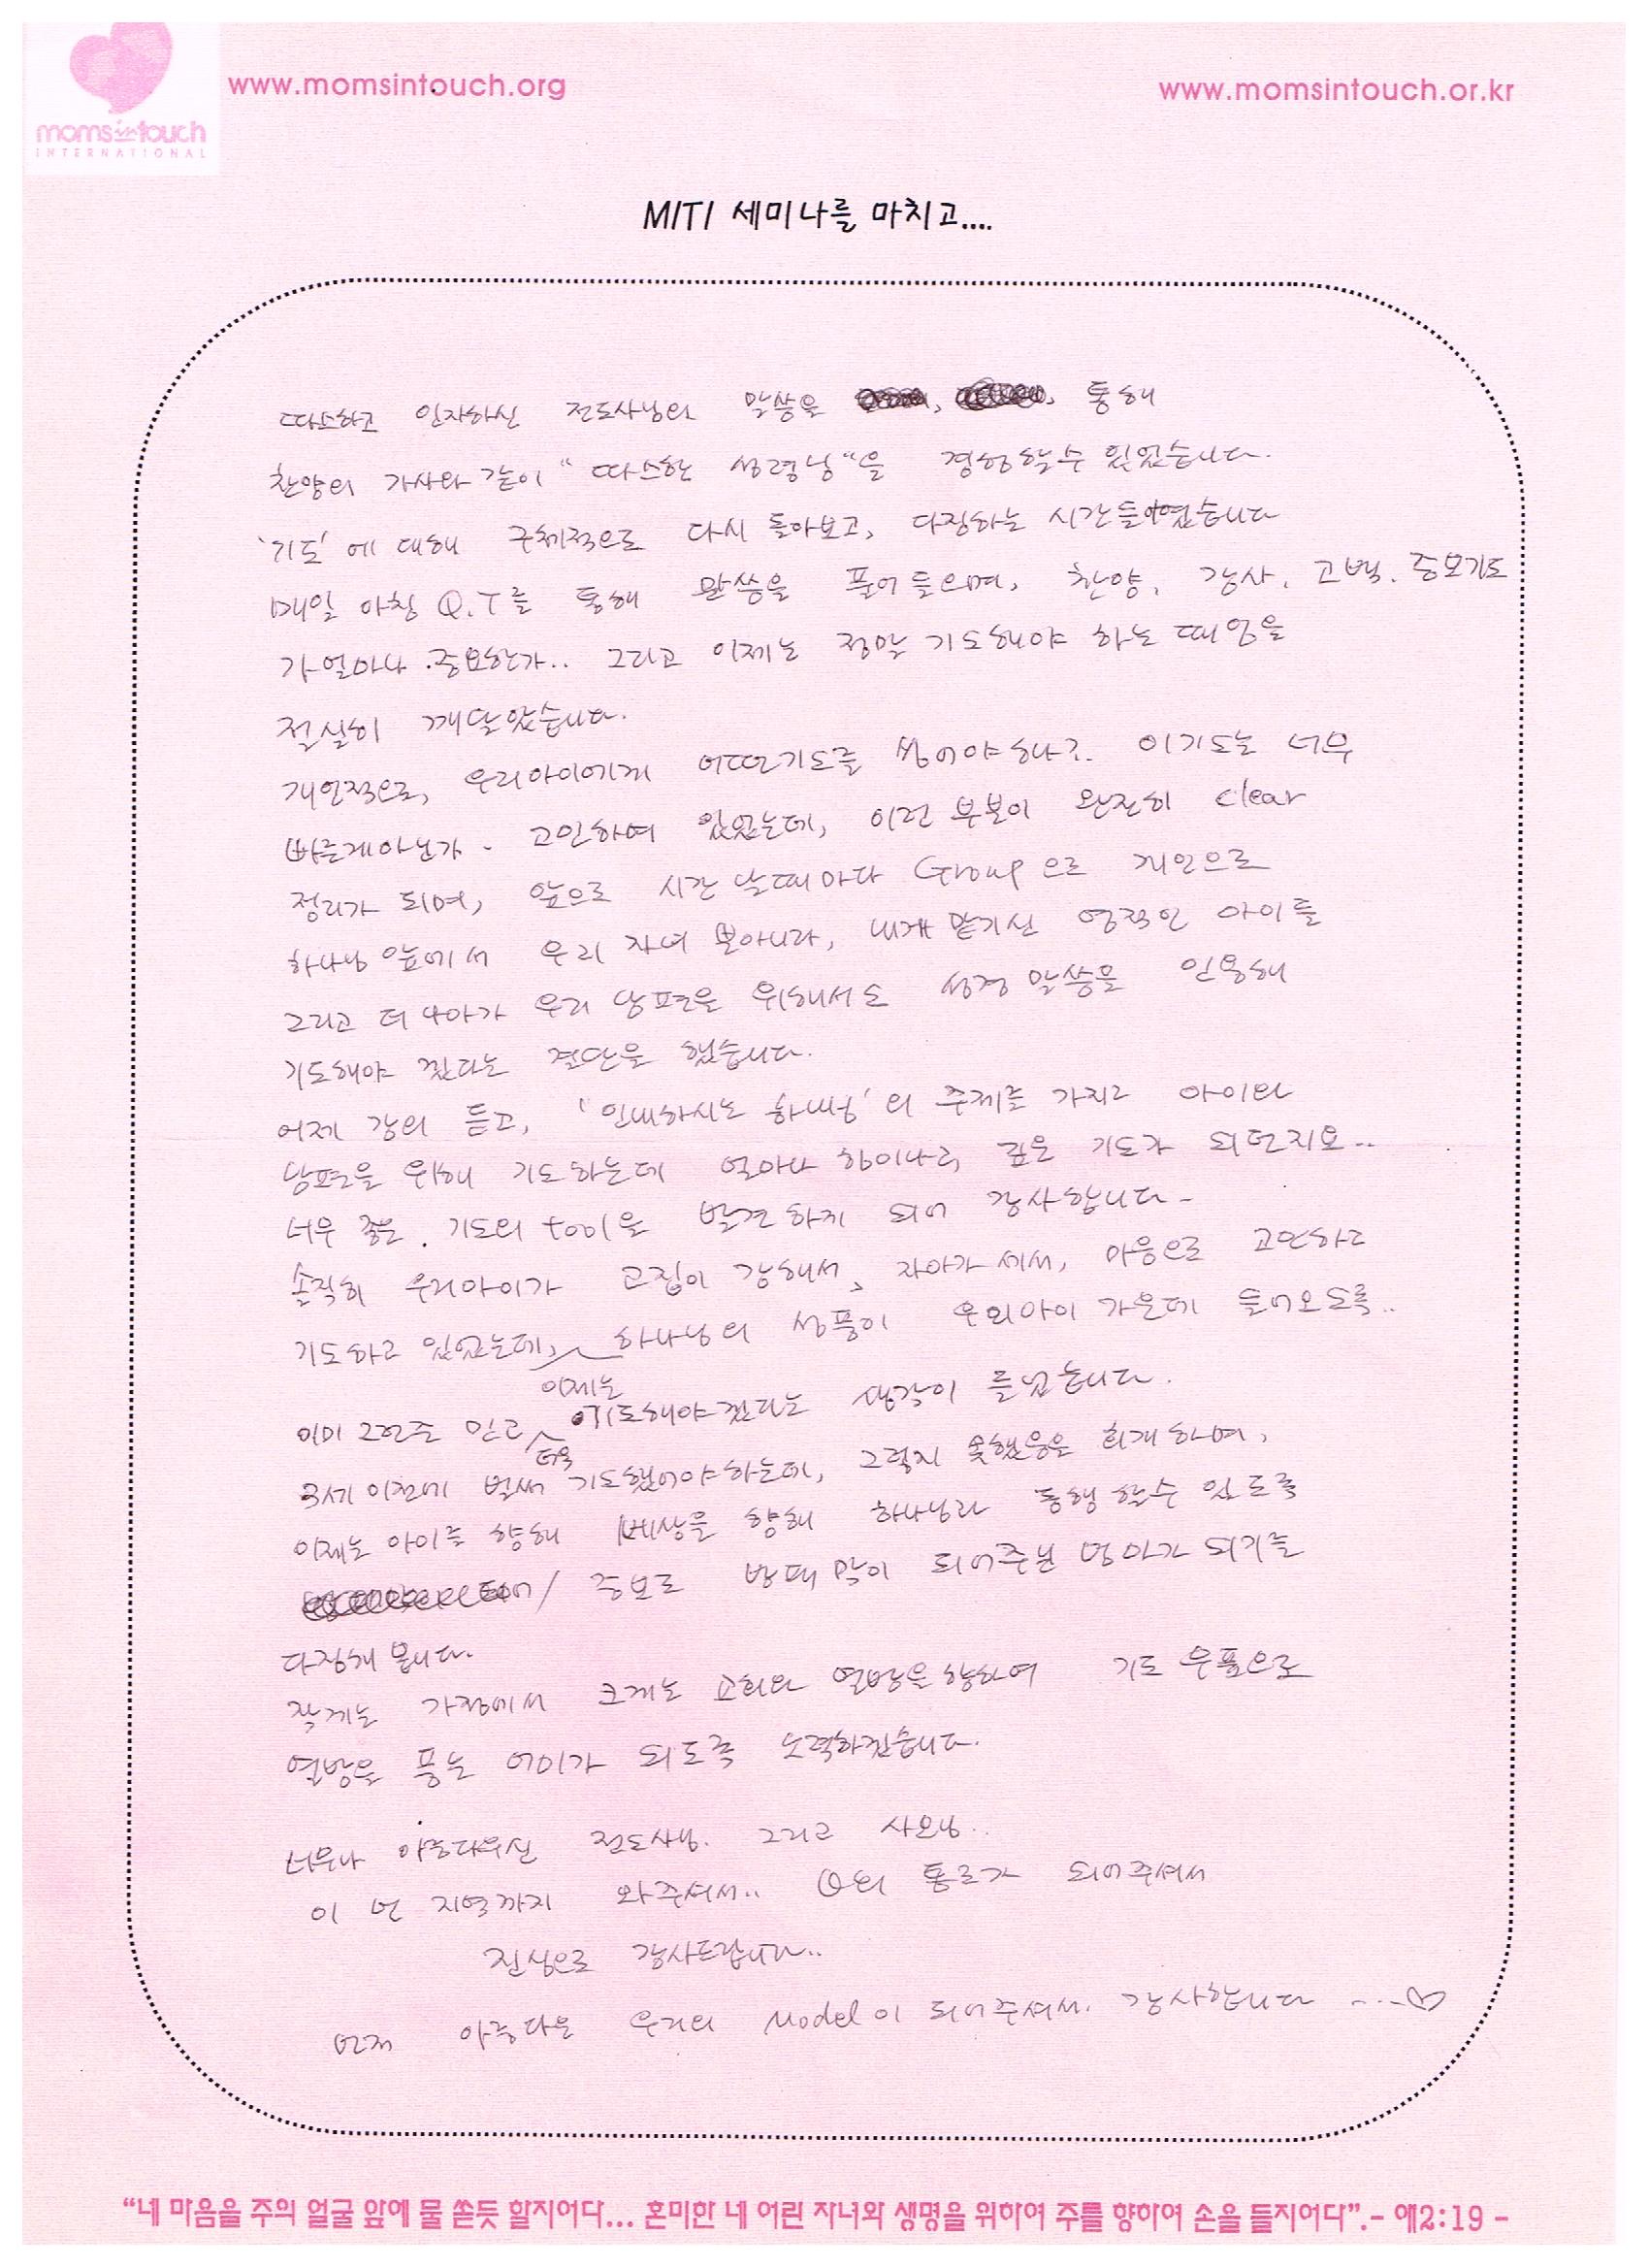 www.momsintouch.org
www.momsintouch.or.kr
momsintouch
INTERNATIONAL
MITI 세미나를 마치고....
따스하고 인자하신 전도사님의 말씀을 통해
찬양의 가사와 같이 "따스한 성령님"을 경험할수 있었습니다.
'기도'에 대해 구체적으로 다시 돌아보고, 다짐하는 시간들이였습니다
매일 아침 Q.T를 통해 말씀을 풀어 들으며, 찬양, 감사, 고백, 중보기도
가 얼마나 중요한가.. 그리고 이제는 정말 기도해야 하는 때임을
절실히 깨달았습니다.
개인적으로, 우리아이에게 어떤기도를 심어야하나?. 이기도는 너무
빠른게아닌가. 고민하여 있었는데, 이런 부분이 완전히 clear
정리가 되며, 앞으로 시간 날때마다 Group으로 개인으로
하나님 앞에서 우리 자녀 뿐아니라, 내게 맡기신 영적인 아이들
그리고 더 나아가 우리 남편을 위해서도 성경 말씀을 인용해
기도해야 겠다는 결단을 했습니다.
어제 강의 듣고, '인내하시는 하나님'의 주제를 가지고 아이와
남편을 위해 기도하는데 얼마나 깊은 기도가 되던지요..
너무 좋은. 기도의 tool을 발견하게 되어 감사합니다-
솔직히 우리아이가 고집이 강해서, 자아가 세서, 마음으로 고민하고
기도하고 있었는데, 하나님의 성품이 우리아이 가운데 들어오도록..
이제는
이미 그런줄 믿고 기도해야겠다는 생각이 들었습니다.
더욱
3세 이전에 벌써 기도했어야하는데, 그렇지 못했음을 회개하며,
이제는 아이를 향해 세상을 향해 하나님과 동행할수 있도록
중보로 방패막이 되어주는 엄마가 되기를
다짐해 봅니다.
작게는 가정에서 크게는 교회와 열방을향하여 기도 우품으로
열방을 품는 어미가 되도록 노력하겠습니다.
너무나 아름다우신 전도사님. 그리고 사모님..
이 먼 지역까지 와주셔서.. 의 통로가 되어주셔서
진심으로 감사드립니다..
먼저 아름다운 우리의 Model이 되어주셔서. 감사합니다 ---♡
"네 마음을 주의 얼굴 앞에 물 쏟듯 할지어다... 혼미한 네 어린 자녀와 생명을 위하여 주를 향하여 손을 들지어다".- 애2:19 -